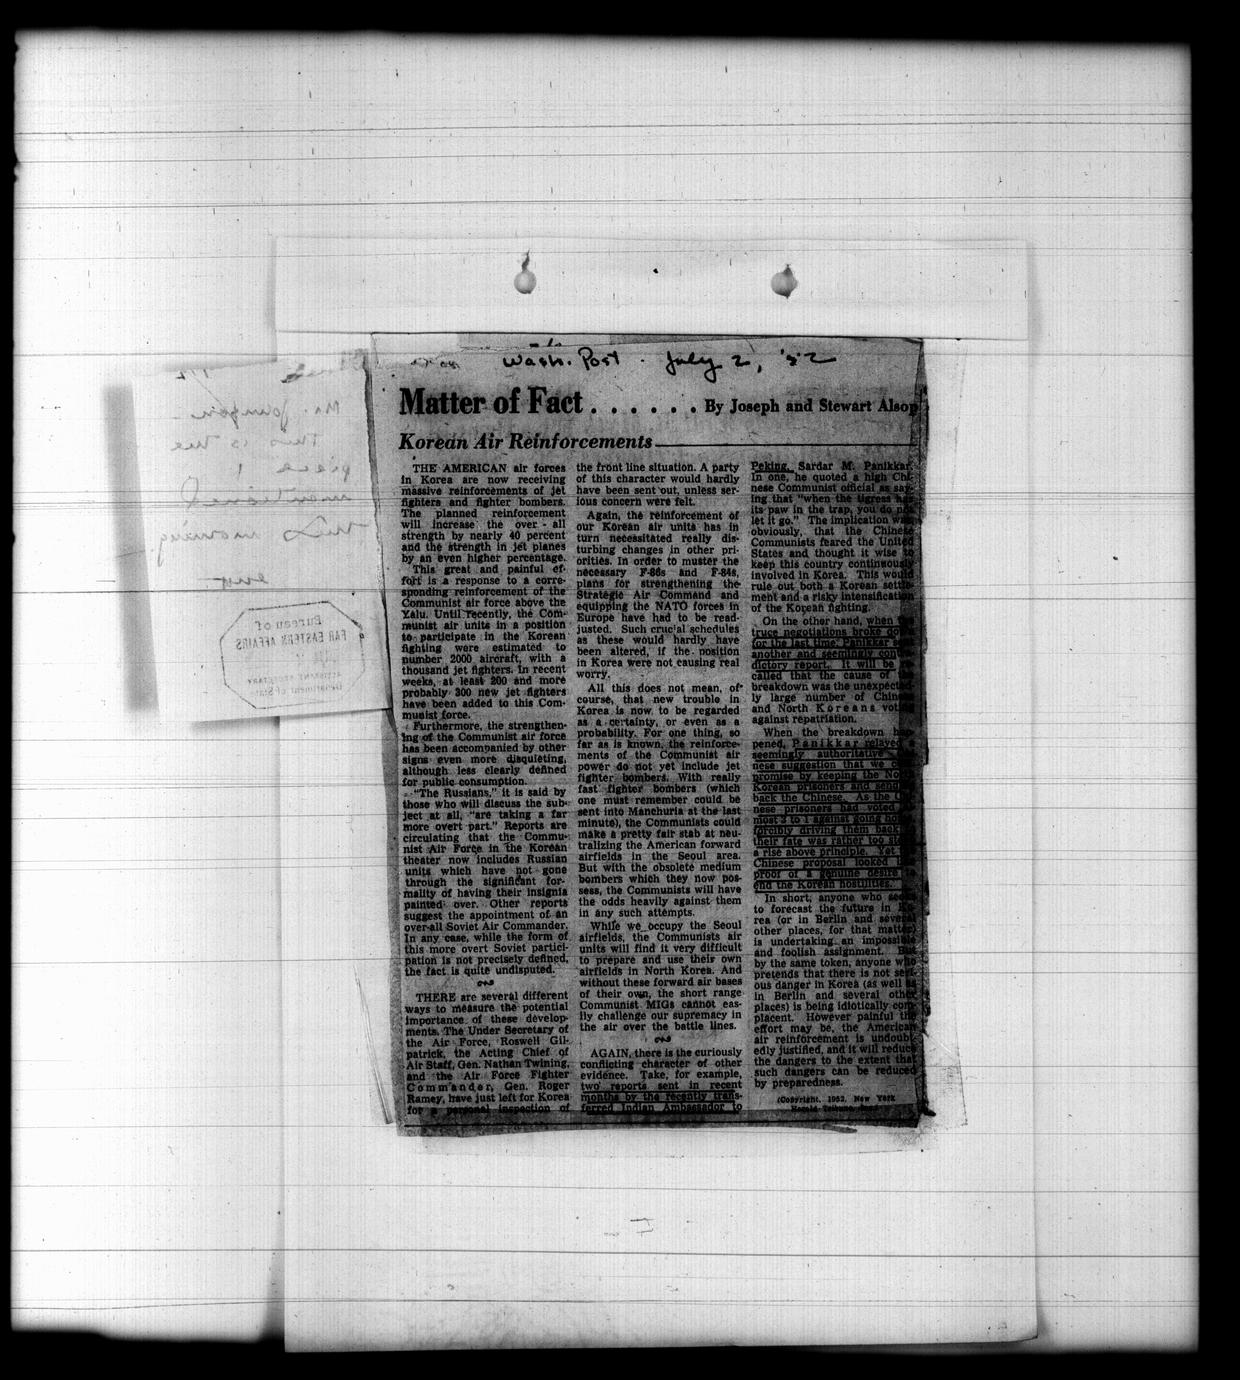 Wash. Post - July 2, '52
Matter of Fact . . . . . . By Joseph and Stewart Alsop
Korean Air Reinforcements
THE AMERICAN air forces
in Korea are now receiving
massive reinforcements of jet
fighters and fighter bombers.
The planned reinforcement
will increase the over - all
strength by nearly 40 percent
and the strength in jet planes
by an even higher percentage.
This great and painful ef-
fort is a response to a corre-
sponding reinforcement of the
Communist air force above the
Yalu. Until recently, the Com-
munist air units in a position
to participate in the Korean
fighting were estimated to
number 2000 aircraft, with a
thousand jet fighters. In recent
weeks, at least 200 and more
probably 300 new jet fighters
have been added to this Com-
munist force.
Furthermore, the strengthen-
ing of the Communist air force
has been accompanied by other
signs even more disquieting,
although less clearly defined
for public consumption.
"The Russians," it is said by
those who will discuss the sub-
ject at all, "are taking a far
more overt part." Reports are
circulating that the Commu-
nist Air Force in the Korean
theater now includes Russian
units which have not gone
through the significant for-
mality of having their insignia
painted over. Other reports
suggest the appointment of an
over-all Soviet Air Commander.
In any case, while the form of
this more overt Soviet partici-
pation is not precisely defined,
the fact is quite undisputed.
THERE are several different
ways to measure the potential
importance of these develop-
ments. The Under Secretary of
the Air Force, Roswell Gil-
patrick, the Acting Chief of
Air Staff, Gen. Nathan Twining,
and the Air Force Fighter
Commander, Gen. Roger
Ramey, have just left for Korea
for a personal inspection of
the front line situation. A party
of this character would hardly
have been sent out, unless ser-
ious concern were felt.
Again, the reinforcement of
our Korean air units has in
turn necessitated really dis-
turbing changes in other pri-
orities. In order to muster the
necessary F-86s and F-84s,
plans for strengthening the
Strategic Air Command and
equipping the NATO forces in
Europe have had to be read-
justed. Such crucial schedules
as these would hardly have
been altered, if the position
in Korea were not causing real
worry.
All this does not mean, of
course, that new trouble in
Korea is now to be regarded
as a certainty, or even as a
probability. For one thing, so
far as is known, the reinforce-
ments of the Communist air
power do not yet include jet
fighter bombers. With really
fast fighter bombers (which
one must remember could be
sent into Manchuria at the last
minute), the Communists could
make a pretty fair stab at neu-
tralizing the American forward
airfields in the Seoul area.
But with the obsolete medium
bombers which they now pos-
sess, the Communists will have
the odds heavily against them
in any such attempts.
While we occupy the Seoul
airfields, the Communists air
units will find it very difficult
to prepare and use their own
airfields in North Korea. And
without these forward air bases
of their own, the short range
Communist MIGs cannot eas-
ily challenge our supremacy in
the air over the battle lines.
AGAIN, there is the curiously
conflicting character of other
evidence. Take, for example,
two reports sent in recent
months by the recently trans-
ferred Indian Ambassador to
Peking, Sardar M. Panikkar.
In one, he quoted a high Chi-
nese Communist official as say-
ing that "when the tigress has
its paw in the trap, you do not
let it go." The implication was
obviously, that the Chinese
Communists feared the United
States and thought it wise to
keep this country continuously
involved in Korea. This would
rule out both a Korean settle-
ment and a risky intensification
of the Korean fighting.
On the other hand, when the
truce negotiations broke down
for the last time, Panikkar
another and seemingly
dictory report. It will be re-
called that the cause of the
breakdown was the unexpected-
ly large number of Chinese
and North Koreans voting
against repatriation.
When the breakdown hap-
pened, Panikkar relayed a
seemingly authoritative Chi-
nese suggestion that we com-
promise by keeping the North
Korean prisoners and sending
back the Chinese. As the Chi-
nese prisoners had voted
most 3 to 1 against going home,
forcibly driving them back
their fate was rather too
a rise above principle. Yet
Chinese proposal looked
proof of a genuine desire to
end the Korean hostilities.
In short, anyone who seeks
to forecast the future in Ko-
rea (or in Berlin and several
other places, for that matter)
is undertaking an impossible
and foolish assignment. But
by the same token, anyone who
pretends that there is not seri-
ous danger in Korea (as well as
in Berlin and several other
places) is being idiotically com-
placent. However painful the
effort may be, the American
air reinforcement is undoubt-
edly justified, and it will reduce
the dangers to the extent that
such dangers can be reduced
by preparedness.
(Copyright, 1952, New York
Herald Tribune, Inc.)
Mr. Johnson -
This is the
piece I
mentioned
this morning.
Bureau of
FAR EASTERN AFFAIRS
Department of State